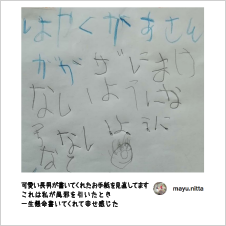 はやくがすさん
かがぜにまけ
ないようにね
可愛い長男が書いてくれたお手紙を見直してます
これは私が風邪を引いたとき
一生懸命書いてくれて幸せ感じた
mayu.nitta